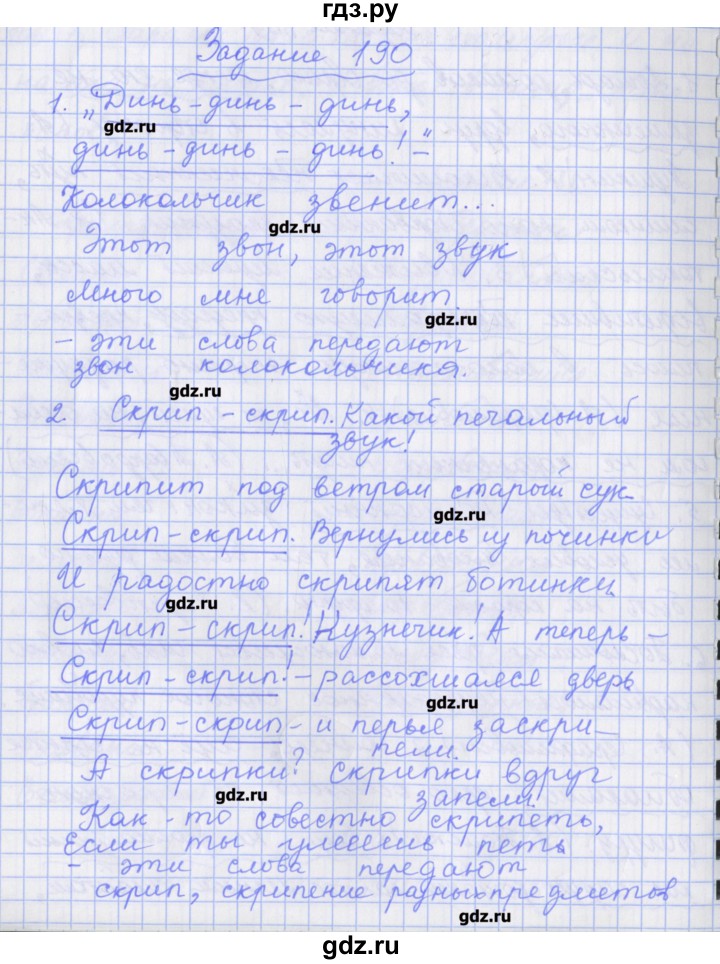 гдз.ру
Задание 190
1. „Динь-динь-динь,
gdz.ru
динь-динь-динь!"-
Колокольчик звенит...
gdz.ru
Этот звон, этот звук
Много мне говорит.
gdz.ru
- эти слова передают
звон колокольчика.
gdz.ru
2. Скрип-скрип. Какой печальный
звук!
Скрипит под ветром старый сук.
gdz.ru
Скрип-скрип. Вернулись из починки
И радостно скрипят ботинки.
gdz.ru
Скрип-скрип! Кузнечик! А теперь -
Скрип-скрип! - рассохшаяся дверь
gdz.ru
Скрип-скрип - и перья заскри-
пели.
А скрипки? Скрипки вдруг
gdz.ru
запели.
Как-то совестно скрипеть,
Если ты умеешь петь.
- эти слова передают
скрип, скрипение разных предметов
gdz.ru
gdz.ru